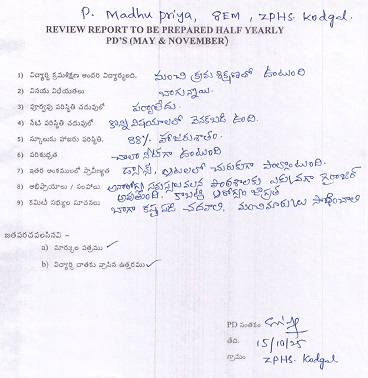 P. Madhu priya, 8EM, ZPHS. Kodgal.
REVIEW REPORT TO BE PREPARED HALF YEARLY
PD'S (MAY & NOVEMBER)
1) విద్యార్థి క్రమశిక్షణ అందరి విద్యార్థులంది. మంచి క్రమశిక్షణలో ఉంటుంది
2) వినయ విధేయతలు బాగున్నాయి.
3) పూర్వపు పరిస్థితి చదువులో పర్వాలేదు.
4) నేటి పరిస్థితి చదువులో కొన్ని విషయాలలో వెనకబడి ఉంది.
5) స్కూలుకు హాజరు పరిస్థితి. 88% హాజరుశాతం.
6) పరిశుభ్రత చాలా నీట్‌గా ఉంటుంది
7) ఇతర అంశములలో ప్రావీణ్యత డాన్స్, ఆటలలో చురుకుగా పాల్గొంటుంది.
8) అభిప్రాయాలు / సలహాలు అనారోగ్య సమస్యలవలన పాఠశాలకు గైరాజర్
9) కమిటీ సభ్యుల సూచనలు అవుతుంది. కాబట్టి ఆరోగ్యం జాగ్రత్త
బాగా కష్టపడి చదవాలి, మంచిమార్కులు సాధించాలి
జతపరచవలసినవి -
a) మార్కుల పత్రము ✓
b) విద్యార్థి చాతకు వ్రాసిన ఉత్తరము ✓
PD సంతకం
తేది. 15/10/25
గ్రామం ZPHS. Kodgal